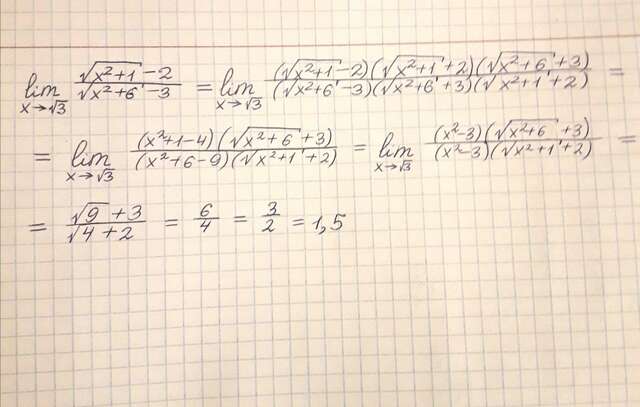 lim x→√3 (√(x²+1) - 2)/(√(x²+6) - 3) = lim x→√3 ((√(x²+1) - 2)(√(x²+1) + 2)(√(x²+6) + 3))/((√(x²+6) - 3)(√(x²+6) + 3)(√(x²+1) + 2)) =
= lim x→√3 ((x²+1-4)(√(x²+6) + 3))/((x²+6-9)(√(x²+1) + 2)) = lim x→√3 ((x²-3)(√(x²+6) + 3))/((x²-3)(√(x²+1) + 2)) =
= (√9 + 3)/(√4 + 2) = 6/4 = 3/2 = 1,5